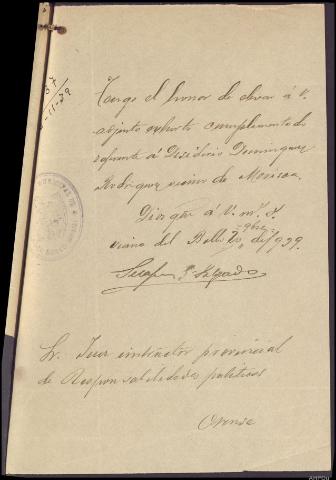 37
-11-39
Tengo el honor de elevar á V.
adjunto exhorto cumplimentado
referente á Desiderio Dominguez
Rodriguez vecino de
Dios gûe á V. m.s a.s
Viana del Bollo 20, de 1939.
-9bre-
Salgado
Sr. Juez instructor provincial
de Responsabilidades politicas
Orense